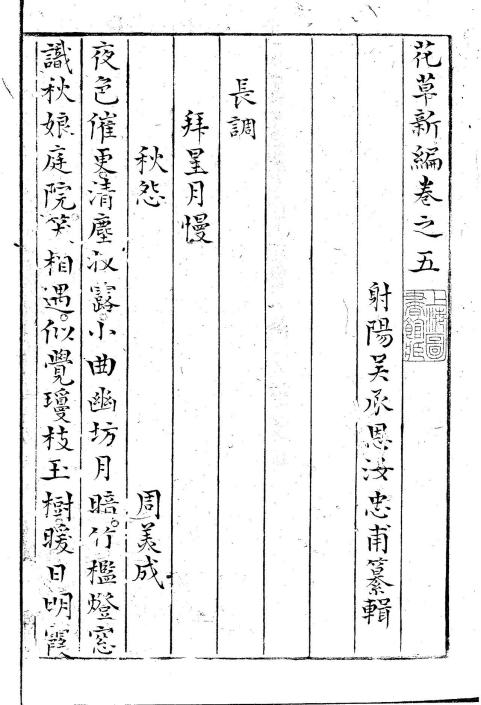 花草新編卷之五
上海圖書館藏
射陽吳承恩汝忠甫纂輯
長調
拜星月慢
秋怨 周美成
夜色催更清塵收露小曲幽坊月暗竹檻燈窓
識秋娘庭院笑相遇似覺瓊枝玉樹暖日明霞